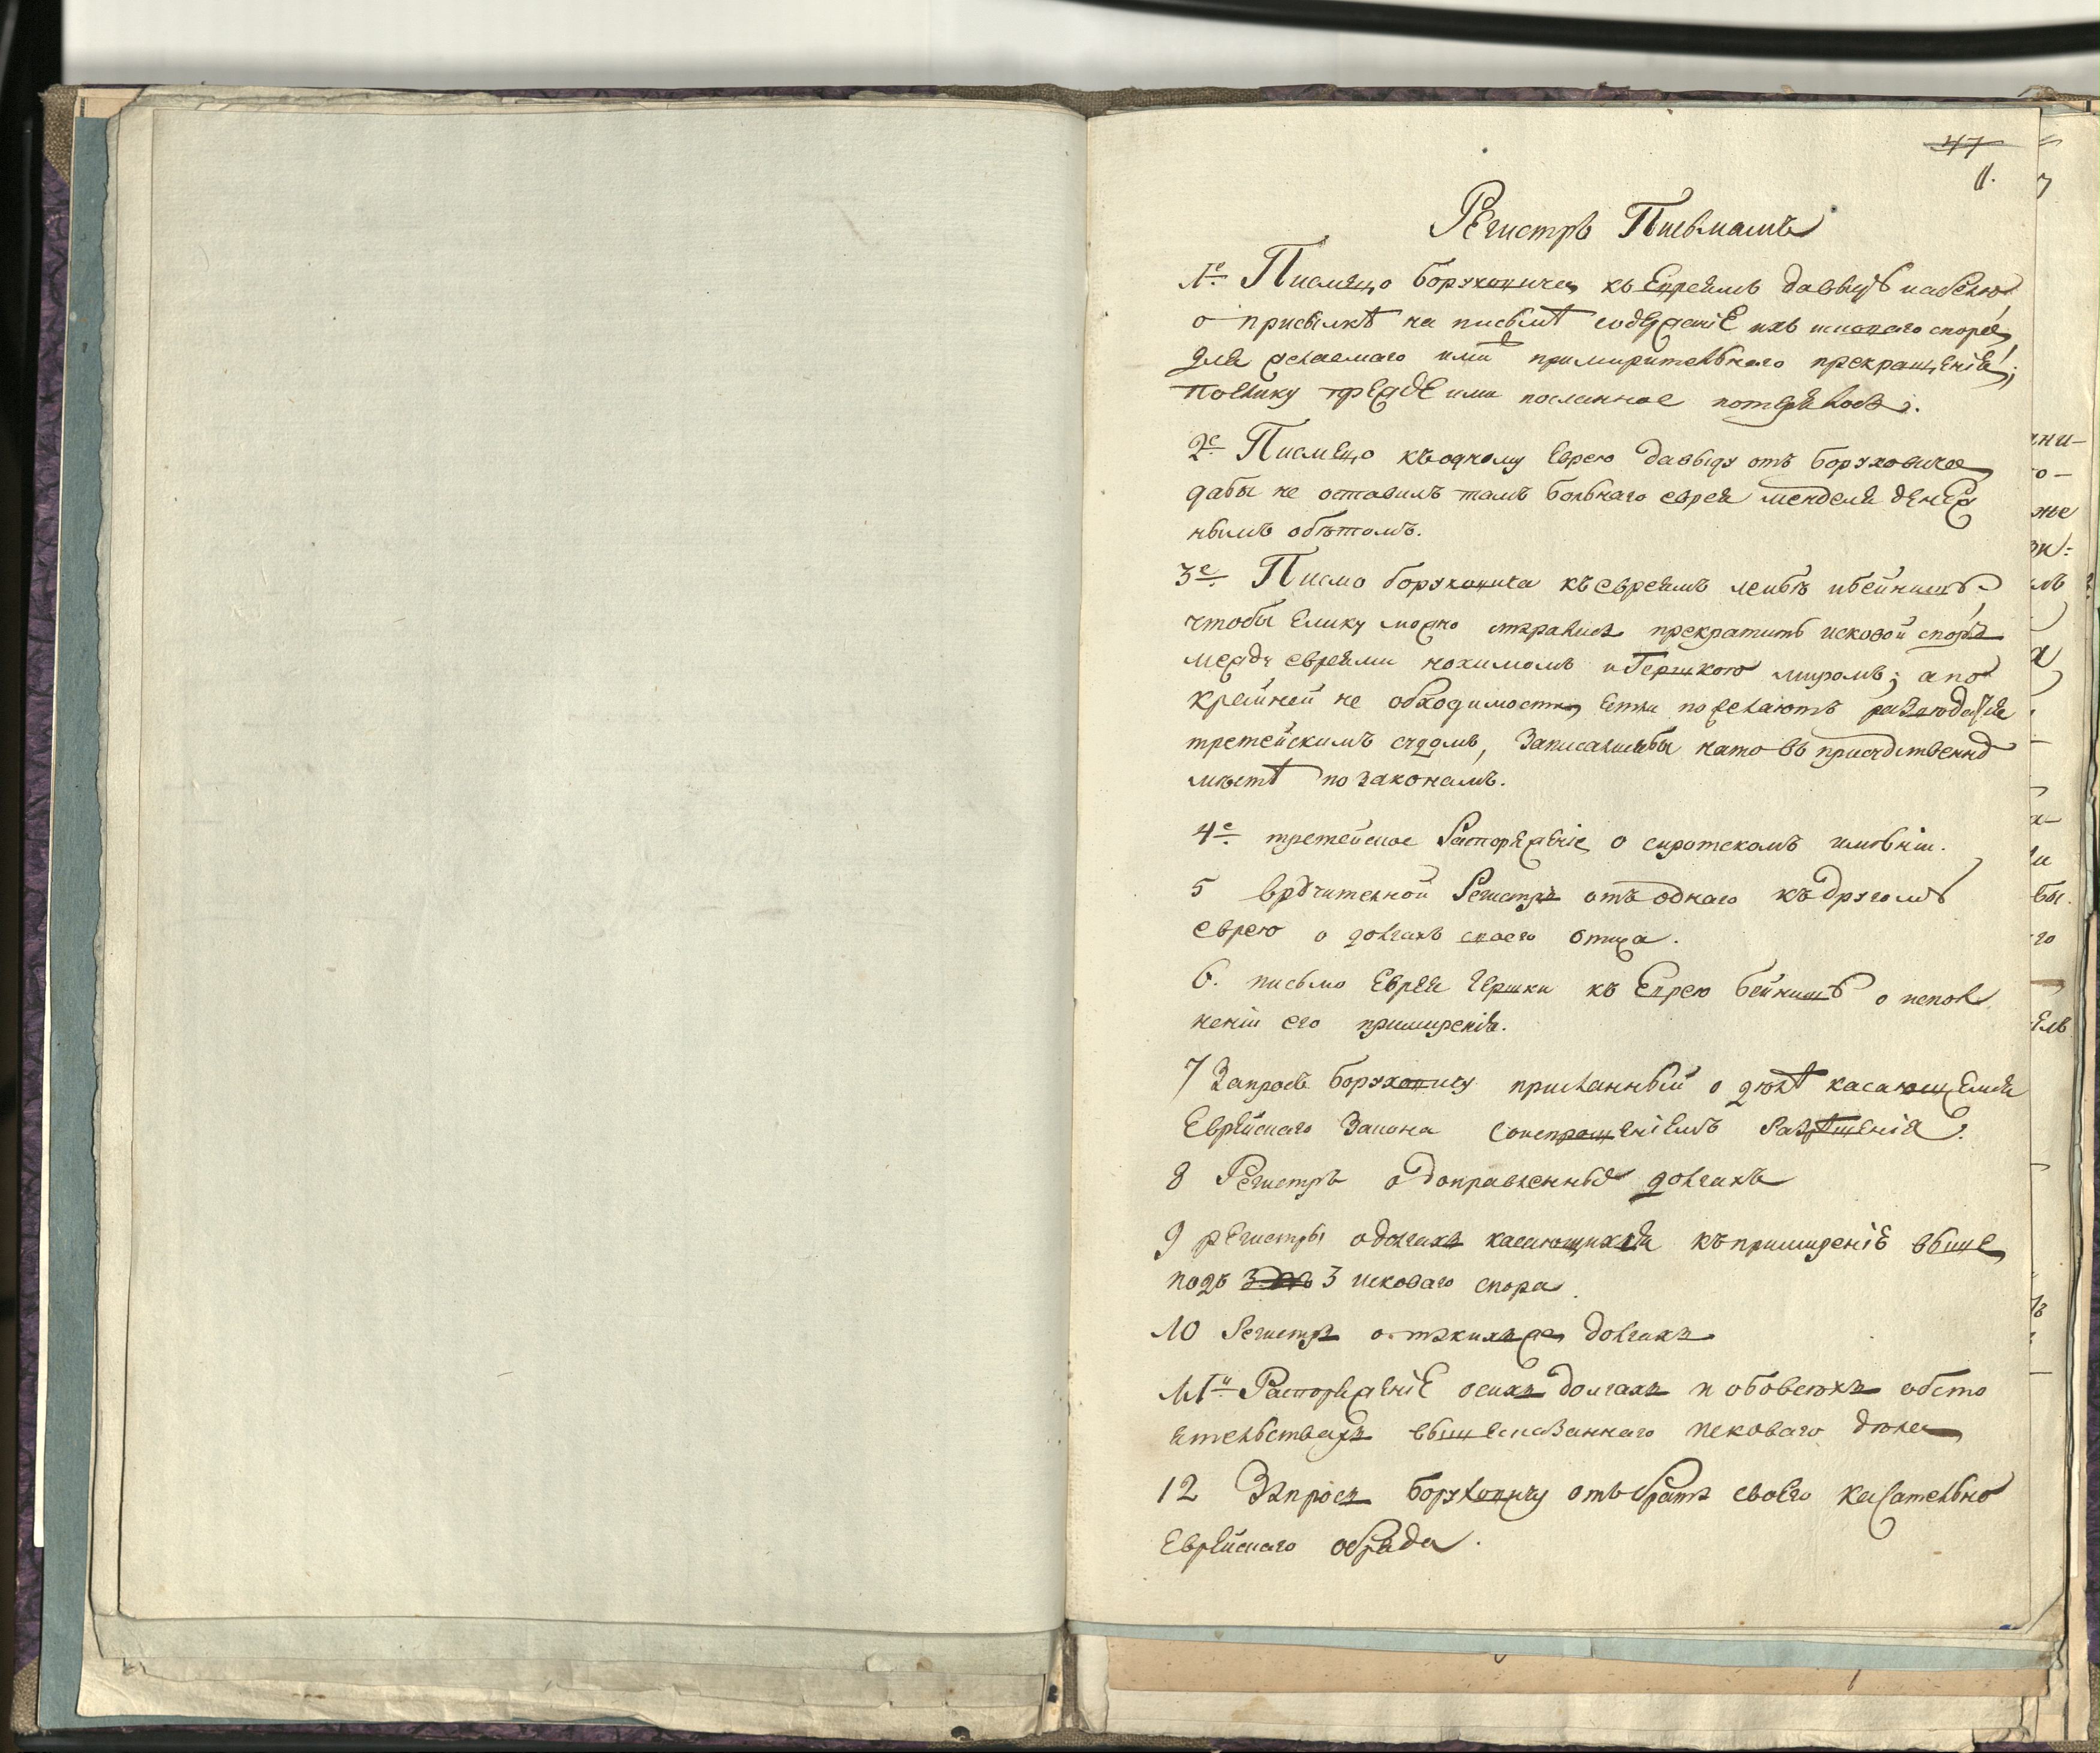 47
11.
Регистръ Письмамъ
1е Письмецо Боруховича къ Евреямъ Давыду и абелю
о присылкѣ на письмѣ содержаніе ихъ исковаго спора,
для желаемаго ими примирительнаго прекращенія;
поелику прежде ими посланное потерялось.
2е Писмецо къ одному Еврею Давыду отъ Боруховича
дабы не оставилъ тамъ больнаго еврея менделя денеж
нымъ обѣтомъ.
3е Писмо Боруховича къ евреямъ лейбѣ и бейнишу
чтобы елику можно старались прекратить исковой споръ
между евреями нохимомъ и Гершкою миромъ; а по
крайней не обходимости, естли пожелаютъ
третейскимъ судомъ, записались бы на то въ присудственнъ
мѣстѣ по законамъ.
4е третейское Распоряженіе о сиротскомъ имѣніи.
5 вручителной Регистръ отъ однаго къ другомъ
еврею о долгахъ своего отца.
6. письмо Еврея Гершки къ Еврею бейнишу о непол
неніи его примиренія.
7 Запросъ Боруховичу присланный о дѣлѣ касающемся
Еврейскаго Закона соиспрошеніемъ разрѣшенія.
8 Регистръ о доправленныхъ долгахъ
9 регистры о долгахъ касающихся къ примиреніе выше
подъ 3 исковаго спора.
10 Регистръ о такихъ же долгахъ
11й Распоряженіе о сихъ долгахъ и обовсѣхъ обсто
ятельствахъ вышесказаннаго исковаго дѣла
12 Запросъ Боруховичу отъ брата своего касательно
Еврейскаго обряда.
ани-
о-
ль
а
бы.
го